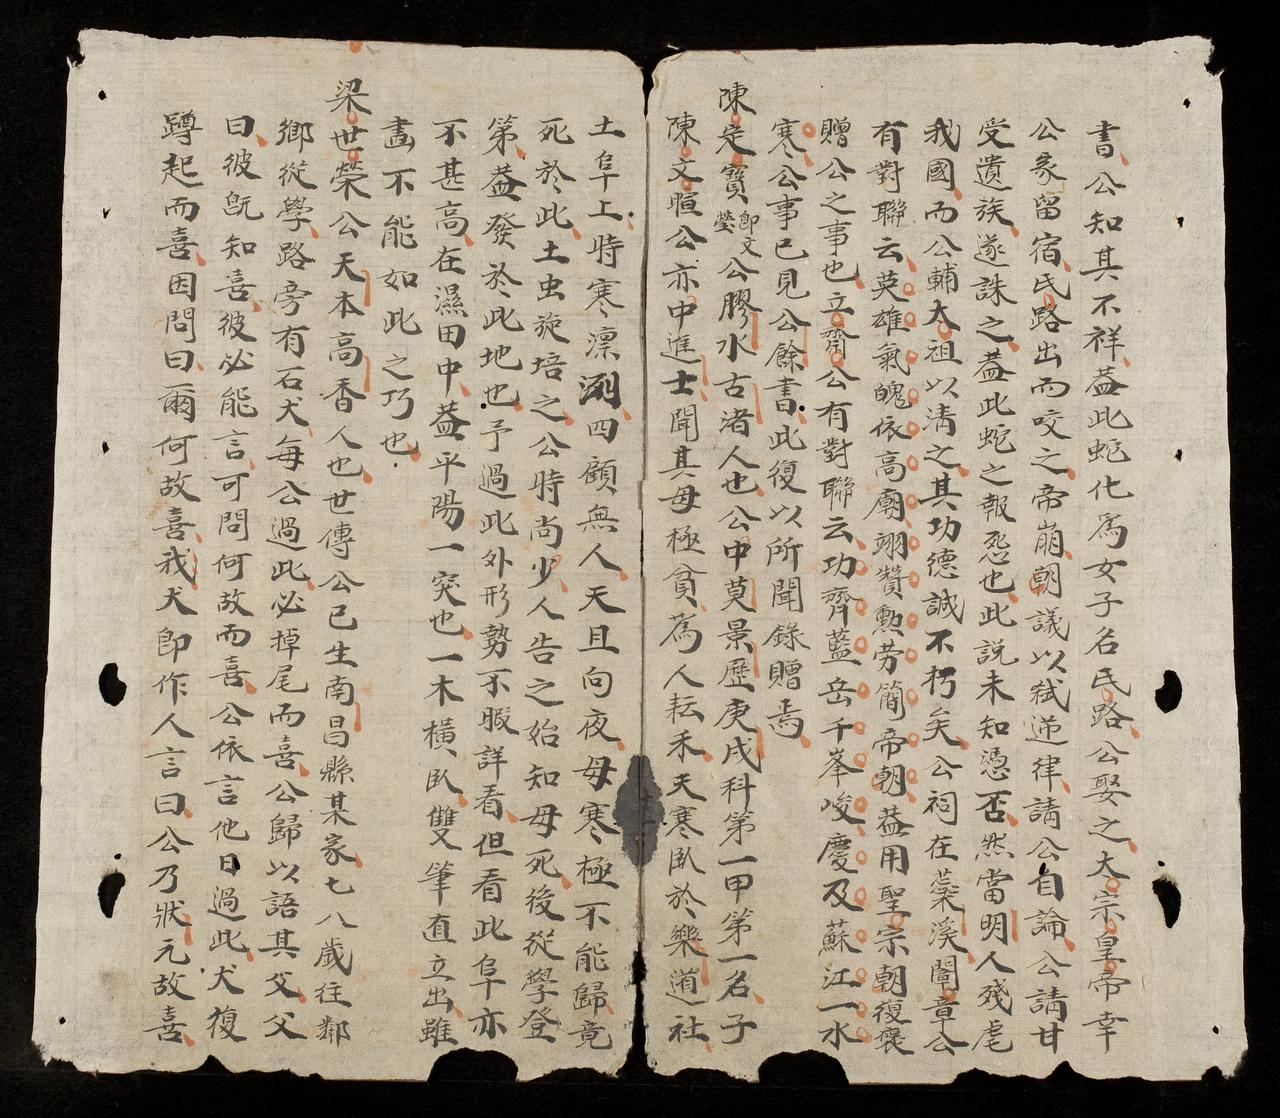 書公知其不祥葢此蛇化爲女子名氏路公娶之大宗皇帝幸
公家留宿氏路出而咬之帝崩朝議以弑逆律請公自論公請甘
受遺族遂誅之葢此蛇之報怨也此説未知憑否然當明人殘虐
我國而公輔大祖以清之其功德誠不朽矣公祠在蘂溪闇章公
有對聯云英雄氣魄依高廟翊贊勲劳簡帝朝葢用聖宗朝復褒
贈公之事也立齋公有對聯云功齊藍岳千峯峻慶及蘇江一水
寒公事已見公餘書此復以所聞錄贈焉
陳定寶即文瑩公膠水古渚人也公中莫景歷庚戌科第一甲第一名子
陳文晅公亦中進士聞其母極貧爲人耘禾天寒臥於樂道社
土阜上時寒凛冽四顧無人天且向夜母寒極不能歸竟
死於此土虫施培之公時尚少人告之始知母死後從學登
第葢發於此地也予過此外形勢不暇詳看但看此阜亦
不甚高在濕田中葢平陽一突也一木橫臥雙筆直立出雖
畵不能如此之巧也
梁世榮公天本高香人也世傳公已生南昌縣某家七八歲往鄰
鄉從學路旁有石犬每公過此必掉尾而喜公歸以語其父父
曰彼旣知喜彼必能言可問何故而喜公依言他日過此犬復
蹲起而喜因問曰爾何故喜我犬即作人言曰公乃狀元故喜